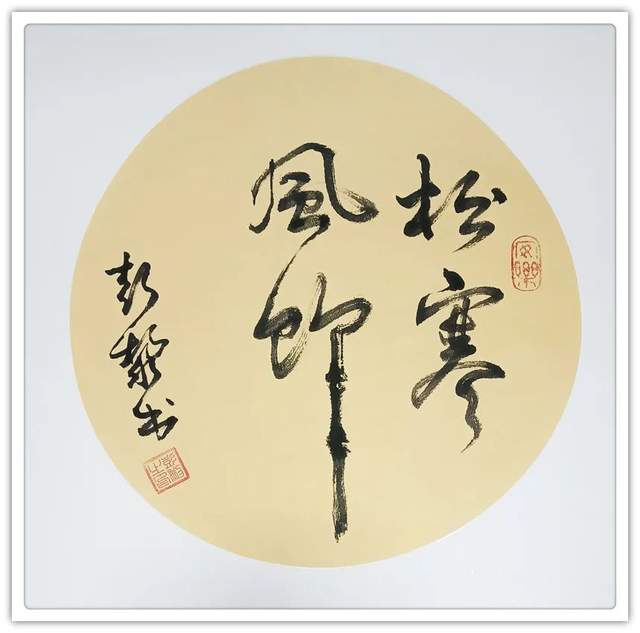 松寒
風節
彭 书